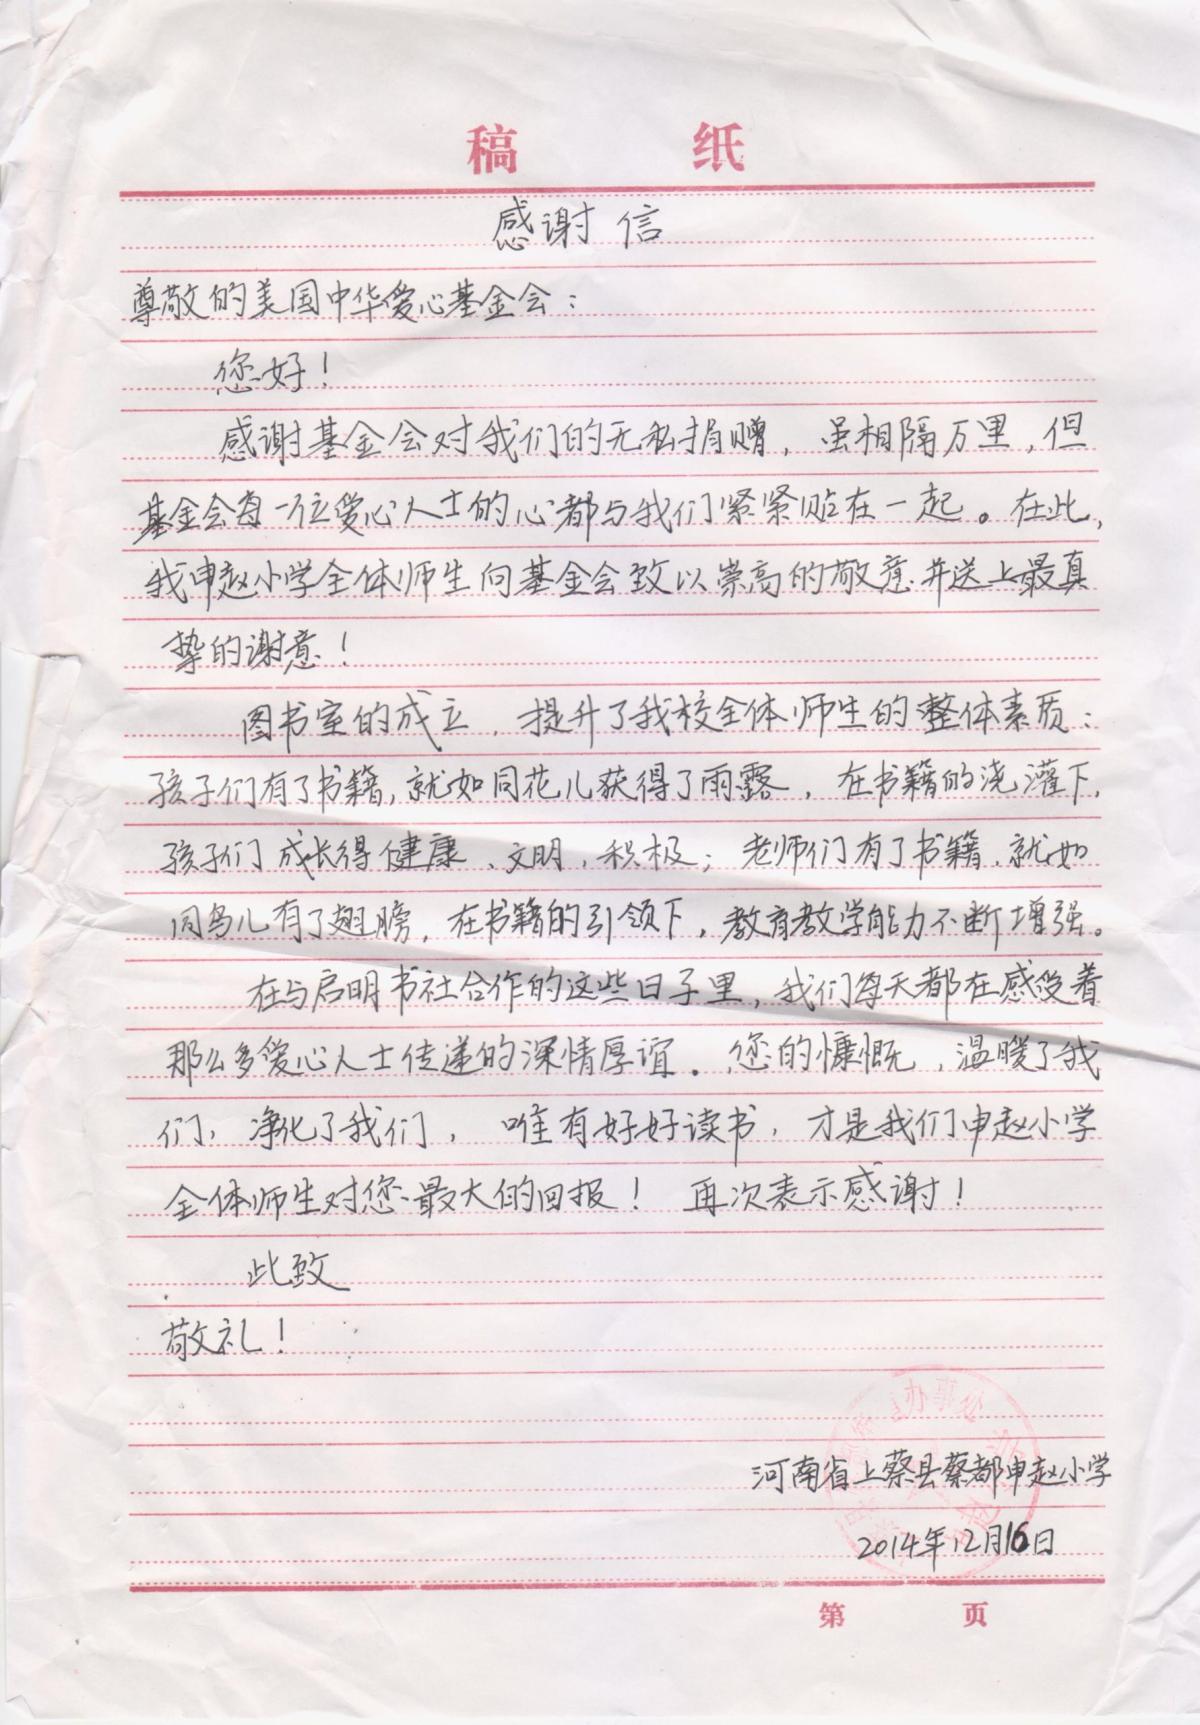 稿 纸
感谢信
尊敬的美国中华爱心基金会：
您好！
感谢基金会对我们的无私捐赠，虽相隔万里，但
基金会每一位爱心人士的心都与我们紧紧贴在一起。在此，
我申赵小学全体师生向基金会致以崇高的敬意，并送上最真
挚的谢意！
图书室的成立，提升了我校全体师生的整体素质：
孩子们有了书籍，就如同花儿获得了雨露，在书籍的浇灌下，
孩子们成长得健康、文明、积极；老师们有了书籍，就如
同鸟儿有了翅膀，在书籍的引领下，教育教学能力不断增强。
在与启明书社合作的这些日子里，我们每天都在感受着
那么多爱心人士传递的深情厚谊。您的慷慨，温暖了我
们，净化了我们，唯有好好读书，才是我们申赵小学
全体师生对您最大的回报！再次表示感谢！
此致
敬礼！
办事处
河南省上蔡县蔡都申赵小学
2014年12月16日
第 页